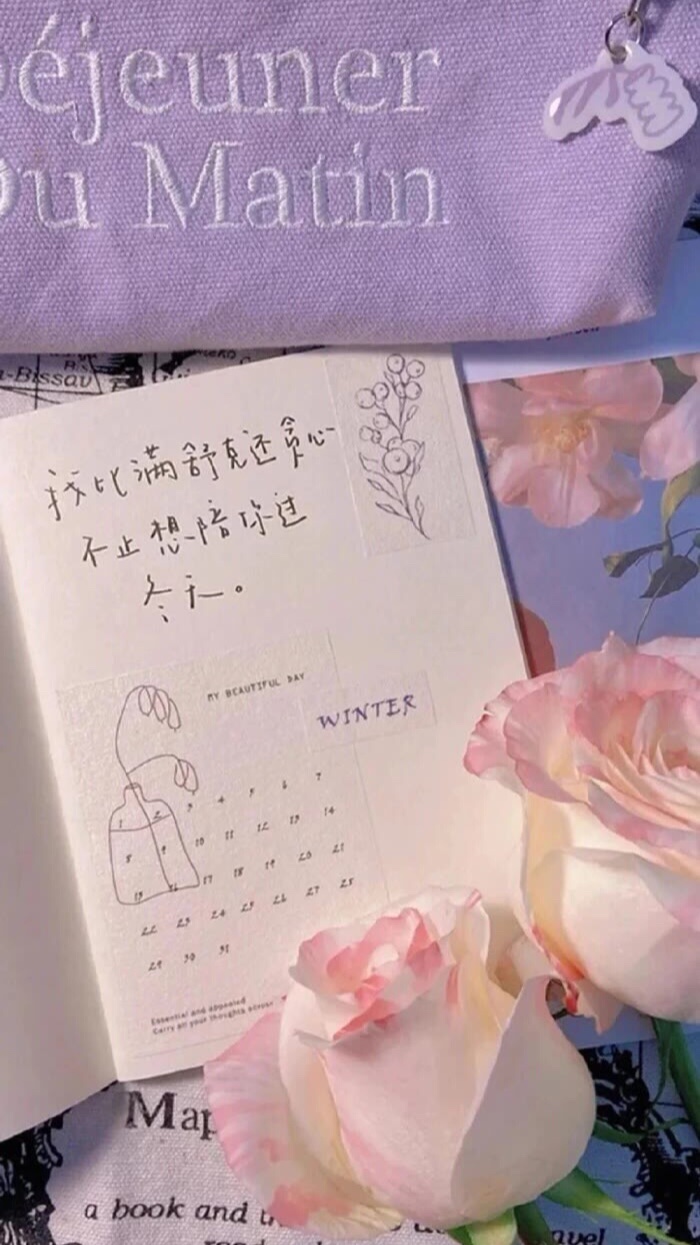 Déjeuner
Du Matin
-Bissau
我比满舒克还贪心
不止想陪你过
冬天。
MY BEAUTIFUL DAY
WINTER
1 2 3 4 5 6 7
8 9 10 11 12 13 14
15 16 17 18 19 20 21
22 23 24 25 26 27 28
29 30 31
Essential and
Carry all your thoughts across
Map
a book and